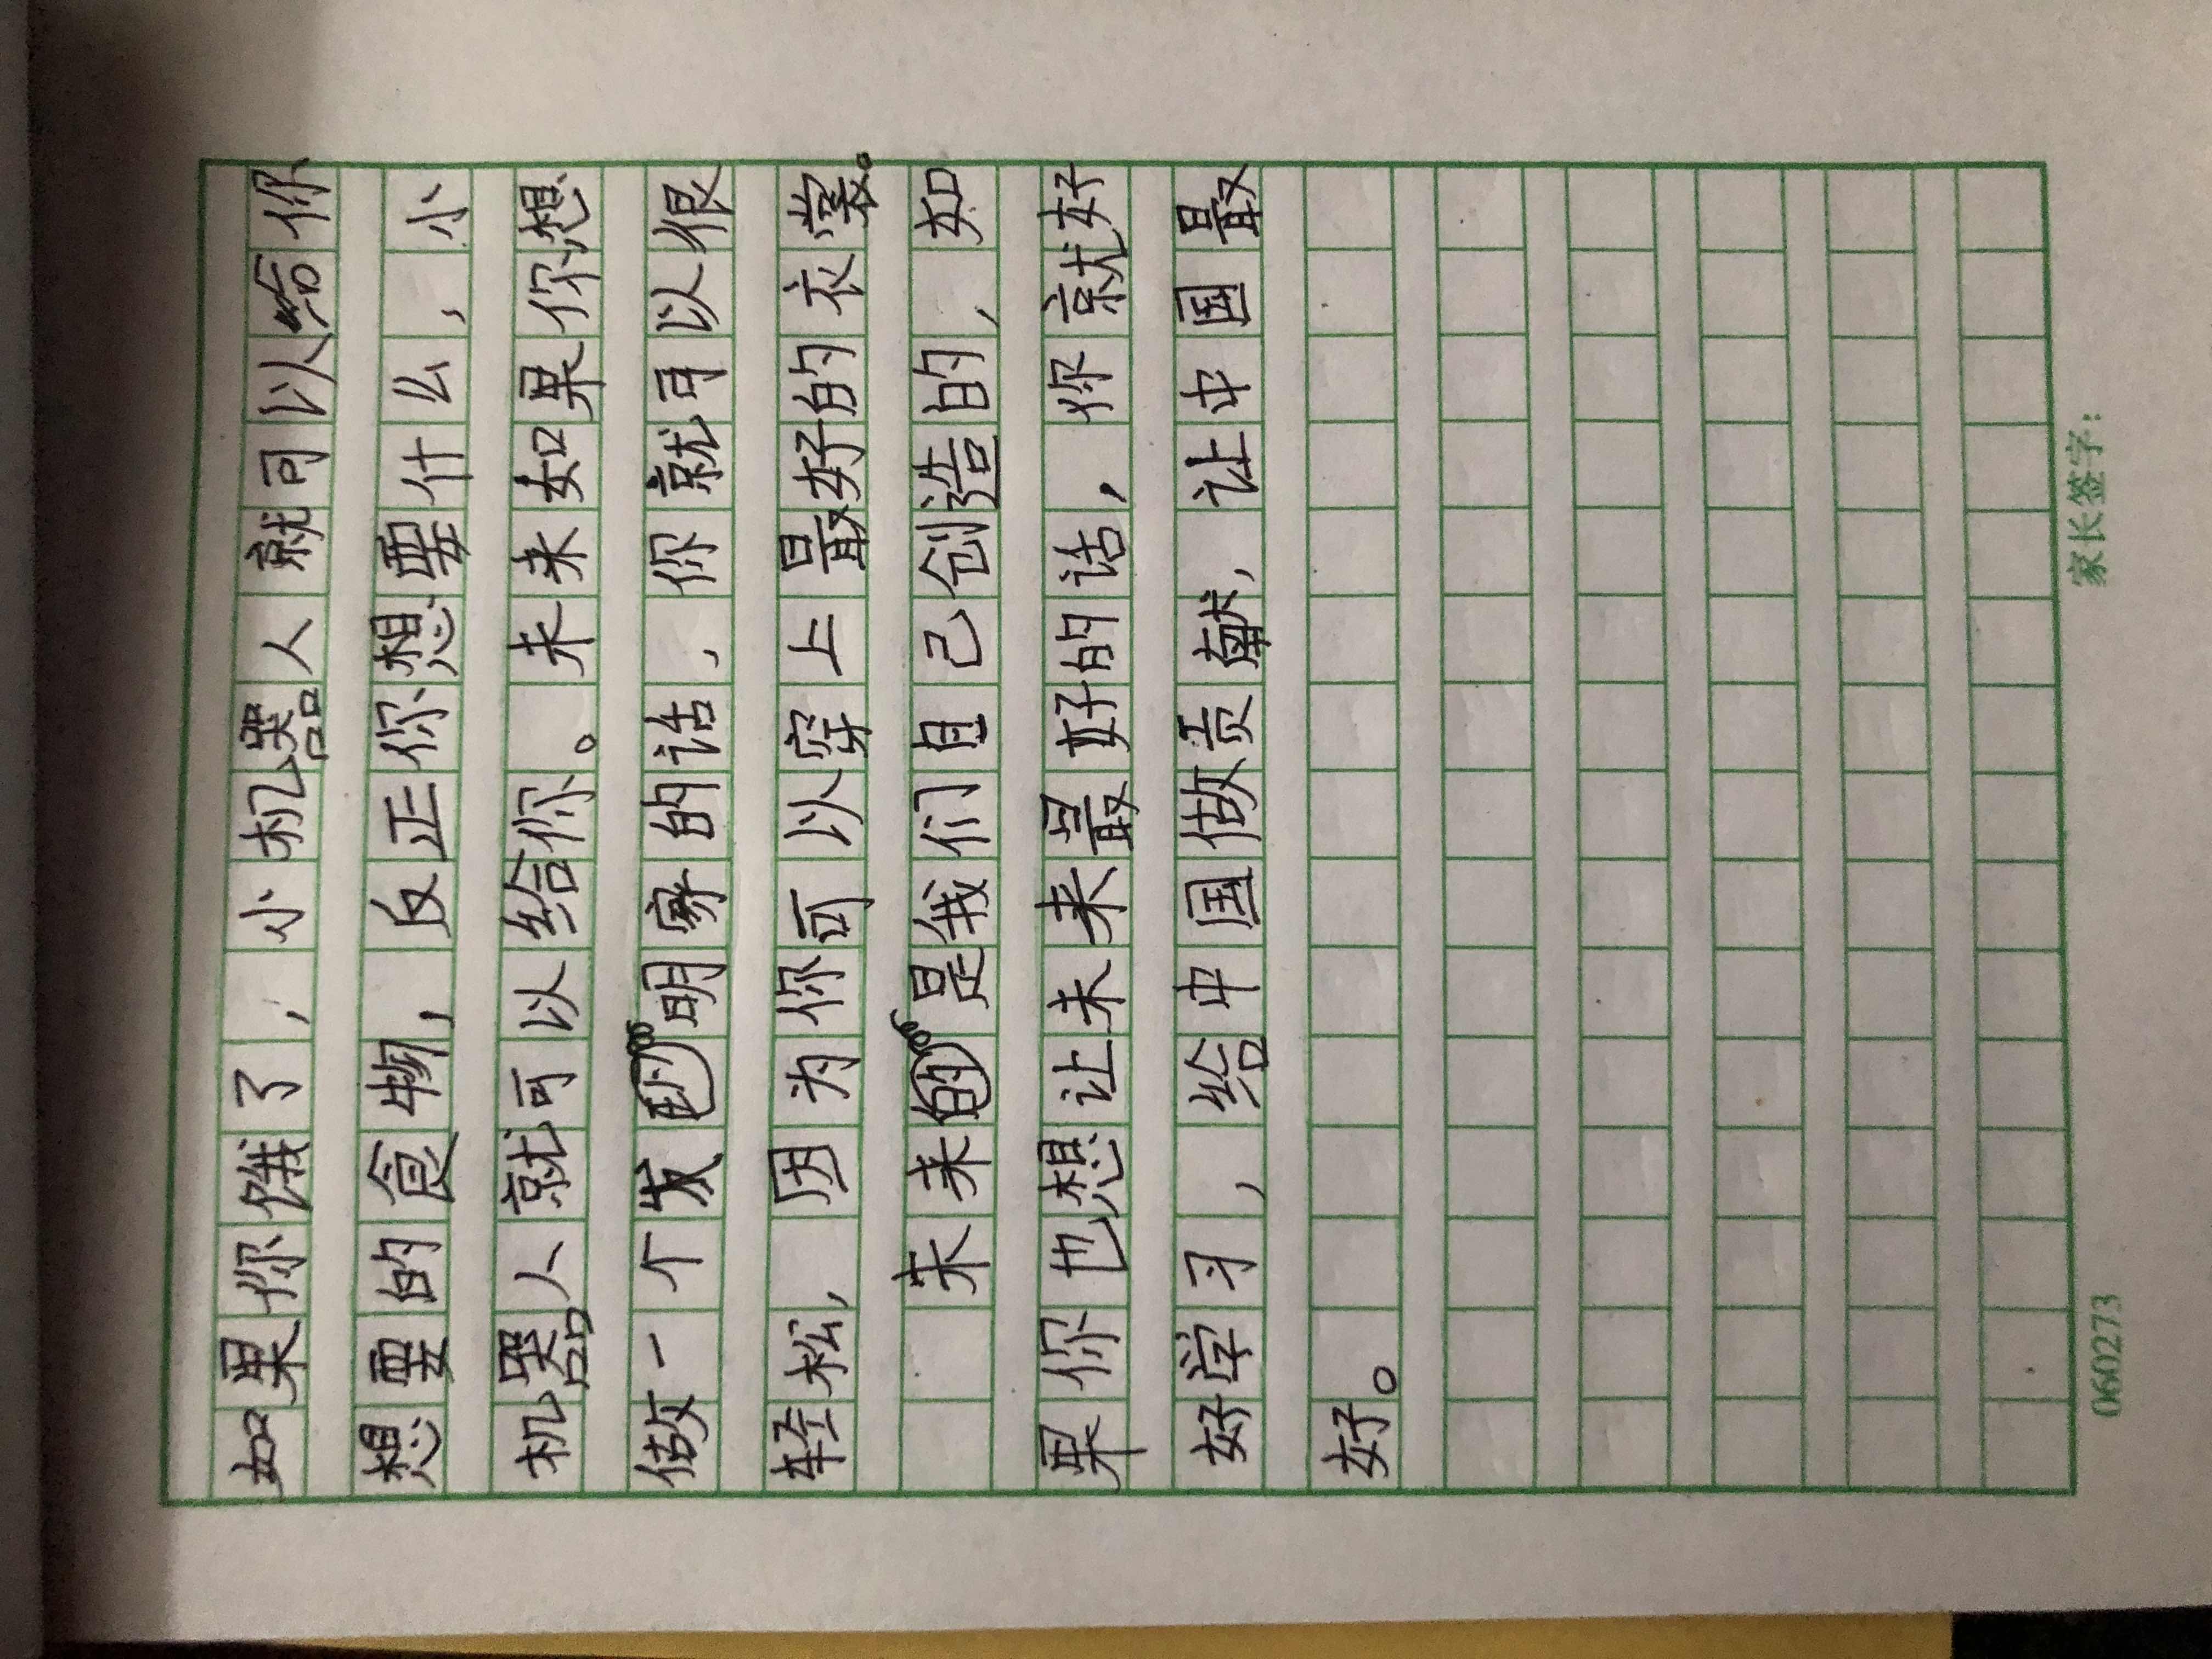 如果你饿了，小机器人就可以给你
想要的食物，反正你想要什么，小
机器人就可以给你。未来如果你想
做一个发明家的话，你就可以很
轻松，因为你可以穿上最好的衣裳。
未来是我们自己创造的，如
果你也想让未来最好的话，你就好
好学习，给中国做贡献，让中国最
好。
060273 家长签字：